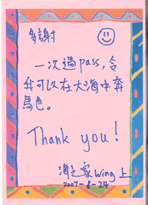 多謝
一次過pass,令
我可以在大海中奔
馬色。
Thank you!
Wing 上
2007-8-24